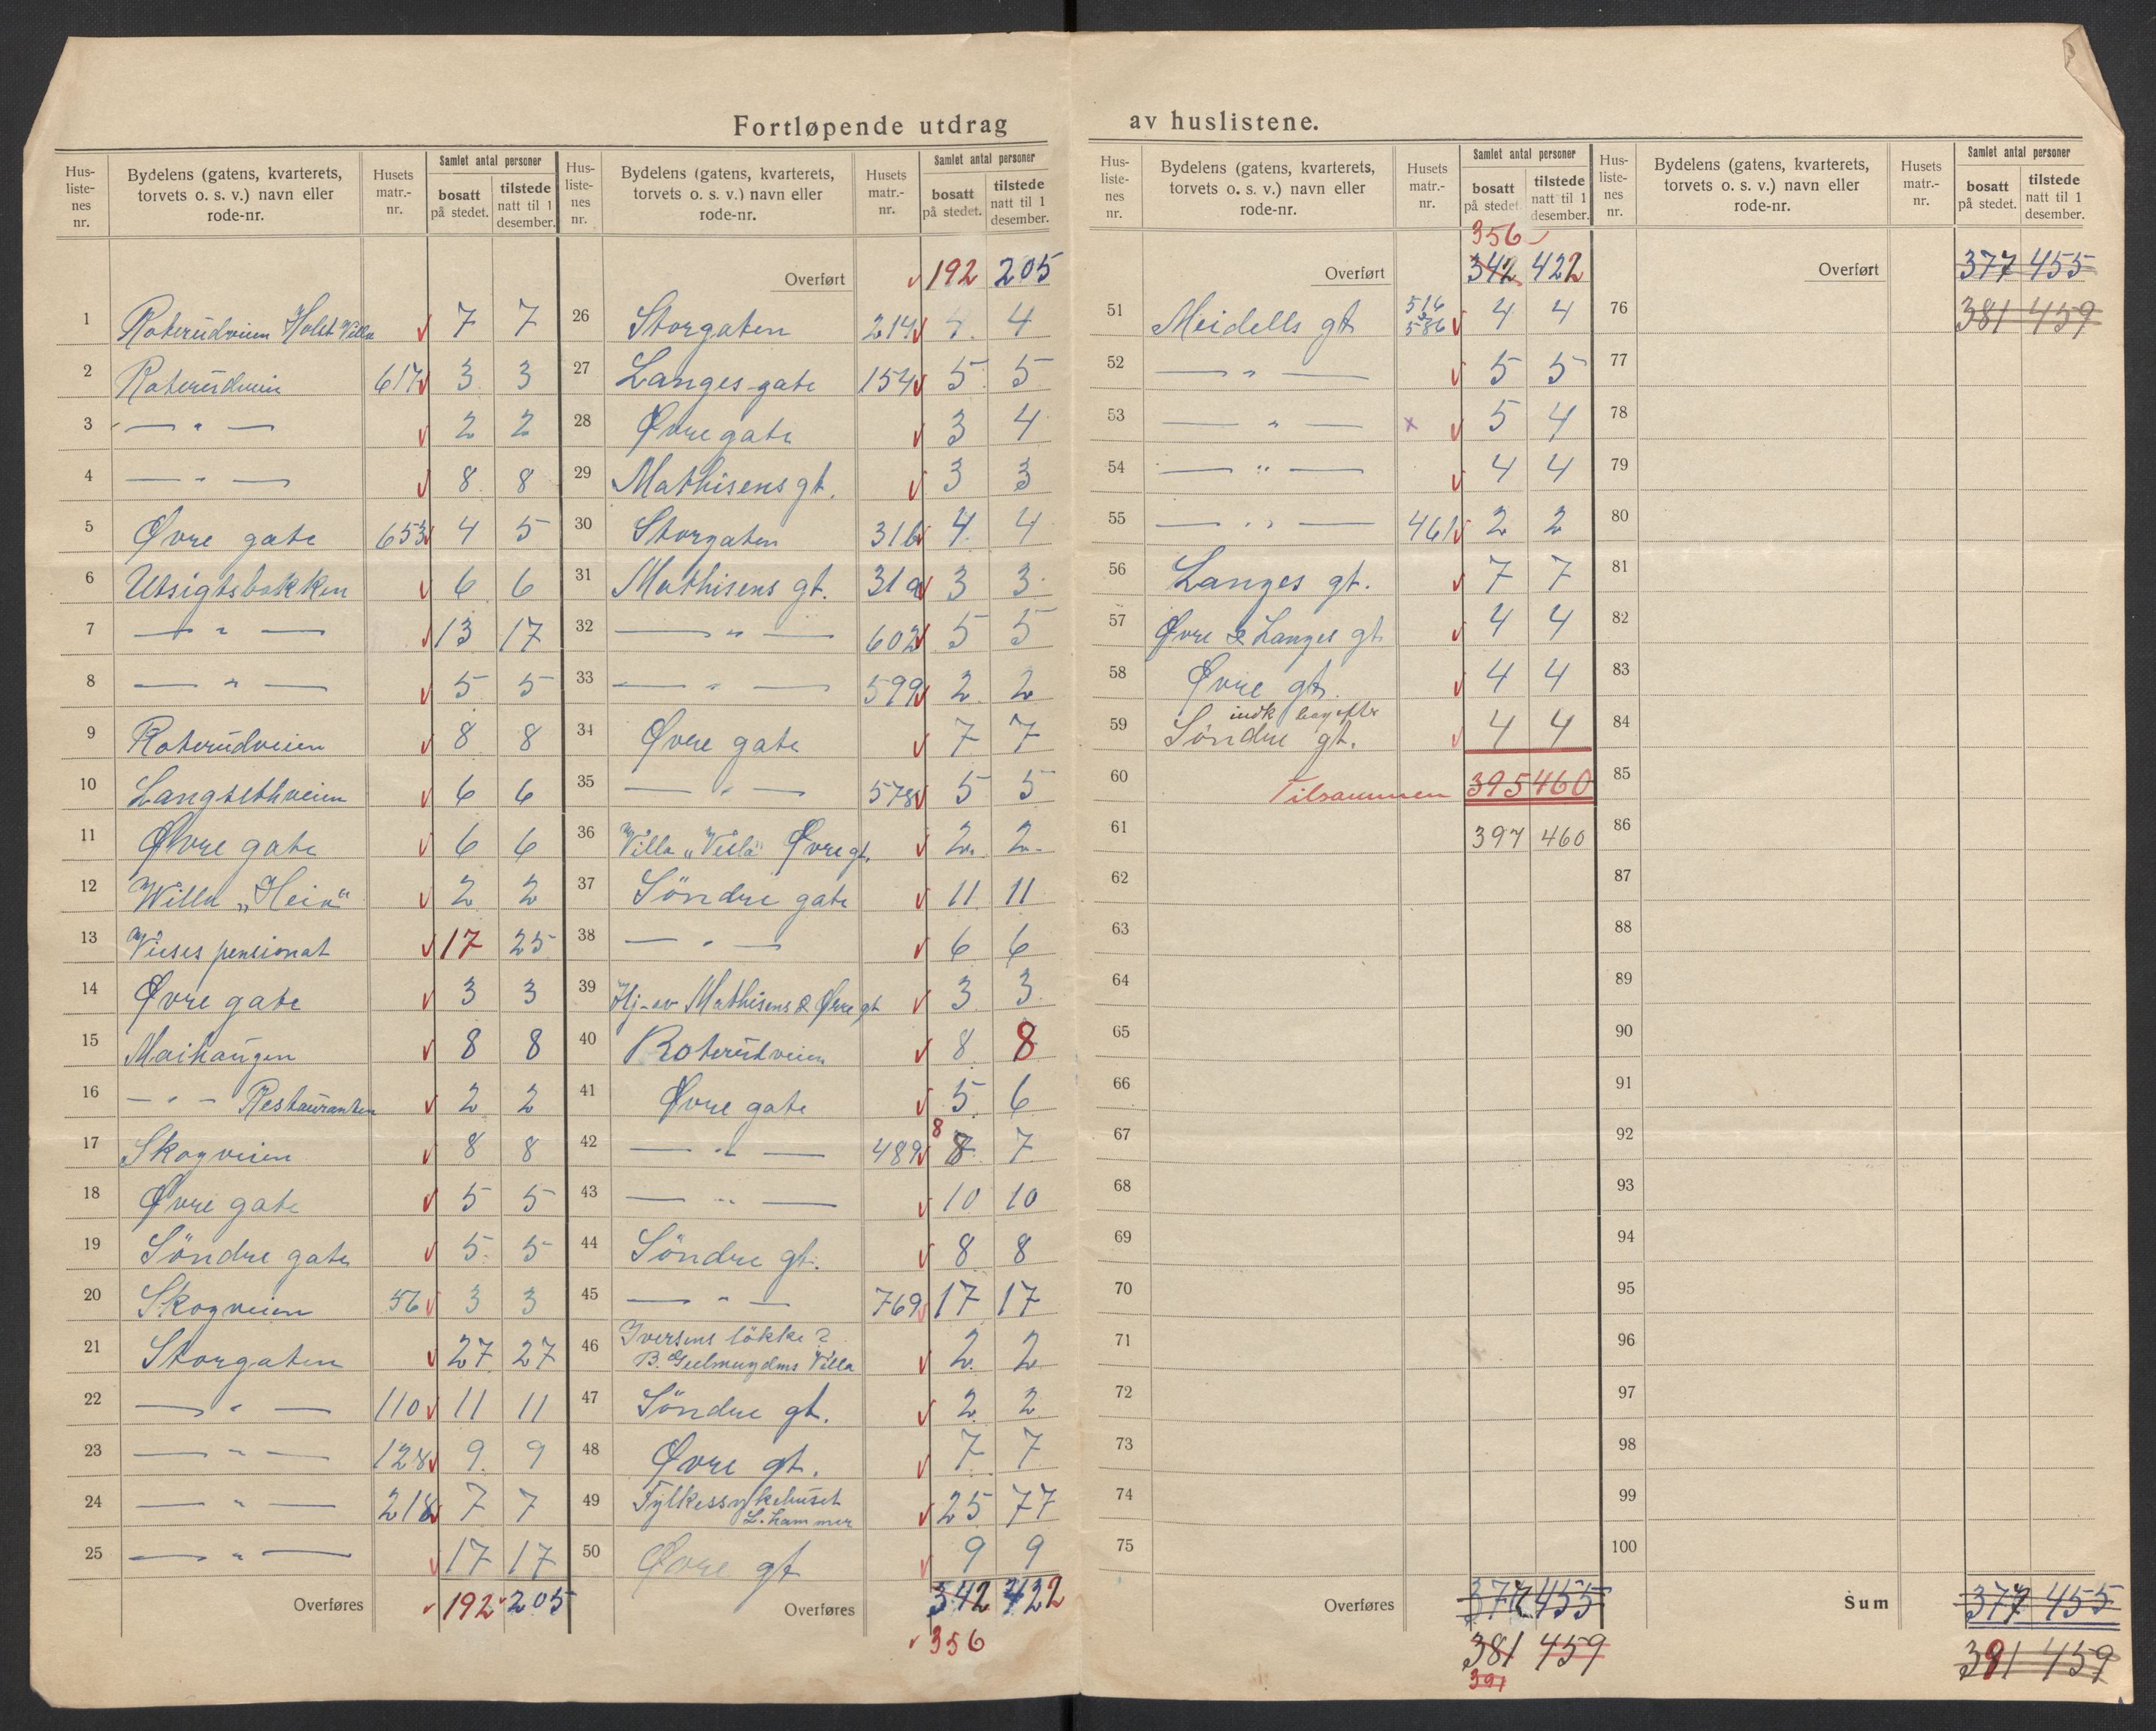 Fortløpende utdrag av huslistene.
Hus-liste-nes nr. | Bydelens (gatens, kvarterets, torvets o. s. v.) navn eller rode-nr. | Husets matr.-nr. | Samlet antal personer | bosatt på stedet. | tilstede natt til 1 desember.
1 Roterudveien Holst Villa 7 7
2 Roterudveien 617 3 3
3 — " — 2 2
4 — " — 8 8
5 Øvre gate 653 4 5
6 Utsigtsbakken 6 6
7 — " — 13 17
8 — " — 5 5
9 Roterudveien 8 8
10 Langsethveien 6 6
11 Øvre gate 6 6
12 Willa „Heia" 2 2
13 Vieses pensionat 17 25
14 Øvre gate 3 3
15 Maihaugen 8 8
16 — " — Restauranten 2 2
17 Skogveien 8 8
18 Øvre gate 5 5
19 Söndre gate 5 5
20 Skogveien 56 3 3
21 Storgaten 27 27
22 — " — 110 11 11
23 — " — 128 9 9
24 — " — 218 7 7
25 — " — 17 17
Overføres 192 205
Hus-liste-nes nr. | Bydelens (gatens, kvarterets, torvets o. s. v.) navn eller rode-nr. | Husets matr.-nr. | Samlet antal personer | bosatt på stedet. | tilstede natt til 1 desember.
Overført 192 205
26 Storgaten 214 4 4
27 Langes gate 154 5 5
28 Øvre gate 3 4
29 Mathisens gt. 3 3
30 Storgaten 316 4 4
31 Mathisens gt. 31a 3 3
32 — " — 602 5 5
33 — " — 599 2 2
34 Øvre gate 7 7
35 — " — 578 5 5
36 Villa „Vesla" Øvre gt. 2 2
37 Söndre gate 11 11
38 — " — 6 6
39 Hj. av Mathisens & Øvre gt 3 3
40 Roterudveien 8 8
41 Øvre gate 5 6
8
42 — " — 489 8 7
43 — " — 10 10
44 Söndre gt. 8 8
45 — " — 769 17 17
46 Iversens lökke ?
B. Villa 2 2
47 Söndre gt. 2 2
48 Øvre gt. 7 7
49 Fylkessykehuset
L.hammer 25 77
50 Øvre gt 9 9
Overføres 342 422
356
Hus-liste-nes nr. | Bydelens (gatens, kvarterets, torvets o. s. v.) navn eller rode-nr. | Husets matr.-nr. | Samlet antal personer | bosatt på stedet. | tilstede natt til 1 desember.
356
Overført 342 422
51 Meidells gt 516 586 4 4
52 — " — 5 5
53 — " — x 5 4
54 — " — 4 4
55 — " — 461 2 2
56 Langes gt. 7 7
57 Øvre & Langes gt 4 4
58 Øvre gt. 4 4
59 Söndre gt. 4 4
60 Tilsammen 395 460
61 397 460
62
63
64
65
66
67
68
69
70
71
72
73
74
75
Overføres 377 455
381 459
391
Hus-liste-nes nr. | Bydelens (gatens, kvarterets, torvets o. s. v.) navn eller rode-nr. | Husets matr.-nr. | Samlet antal personer | bosatt på stedet. | tilstede natt til 1 desember.
Overført 377 455
76 381 459
77
78
79
80
81
82
83
84
85
86
87
88
89
90
91
92
93
94
95
96
97
98
99
100
Sum 377 455
391 459